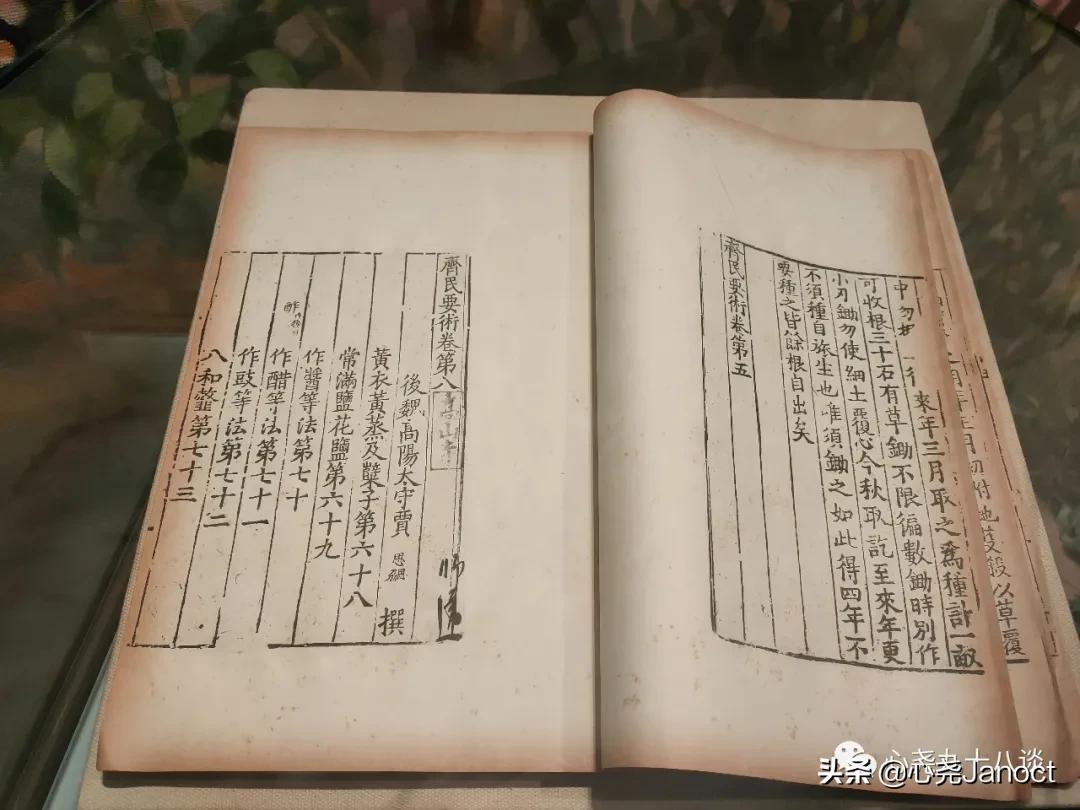 來年三月取之爲種計一畝
可收根三十石有草鋤不限徧數鋤時別作
小刃鋤勿使細土覆心今秋取訖至來年更
不須種自旅生也唯須鋤之如此得四年不
要種之皆餘根自出矣
齊民要術卷第五
齊民要術卷第八
後魏高陽太守賈思勰撰
黃衣黃蒸及糵子第六十八
常滿鹽花鹽第六十九
作醬等法第七十
作醋等法第七十一
作豉等法第七十二
八和韲第七十三
心尧九十八谈
头条 @心尧Janoct